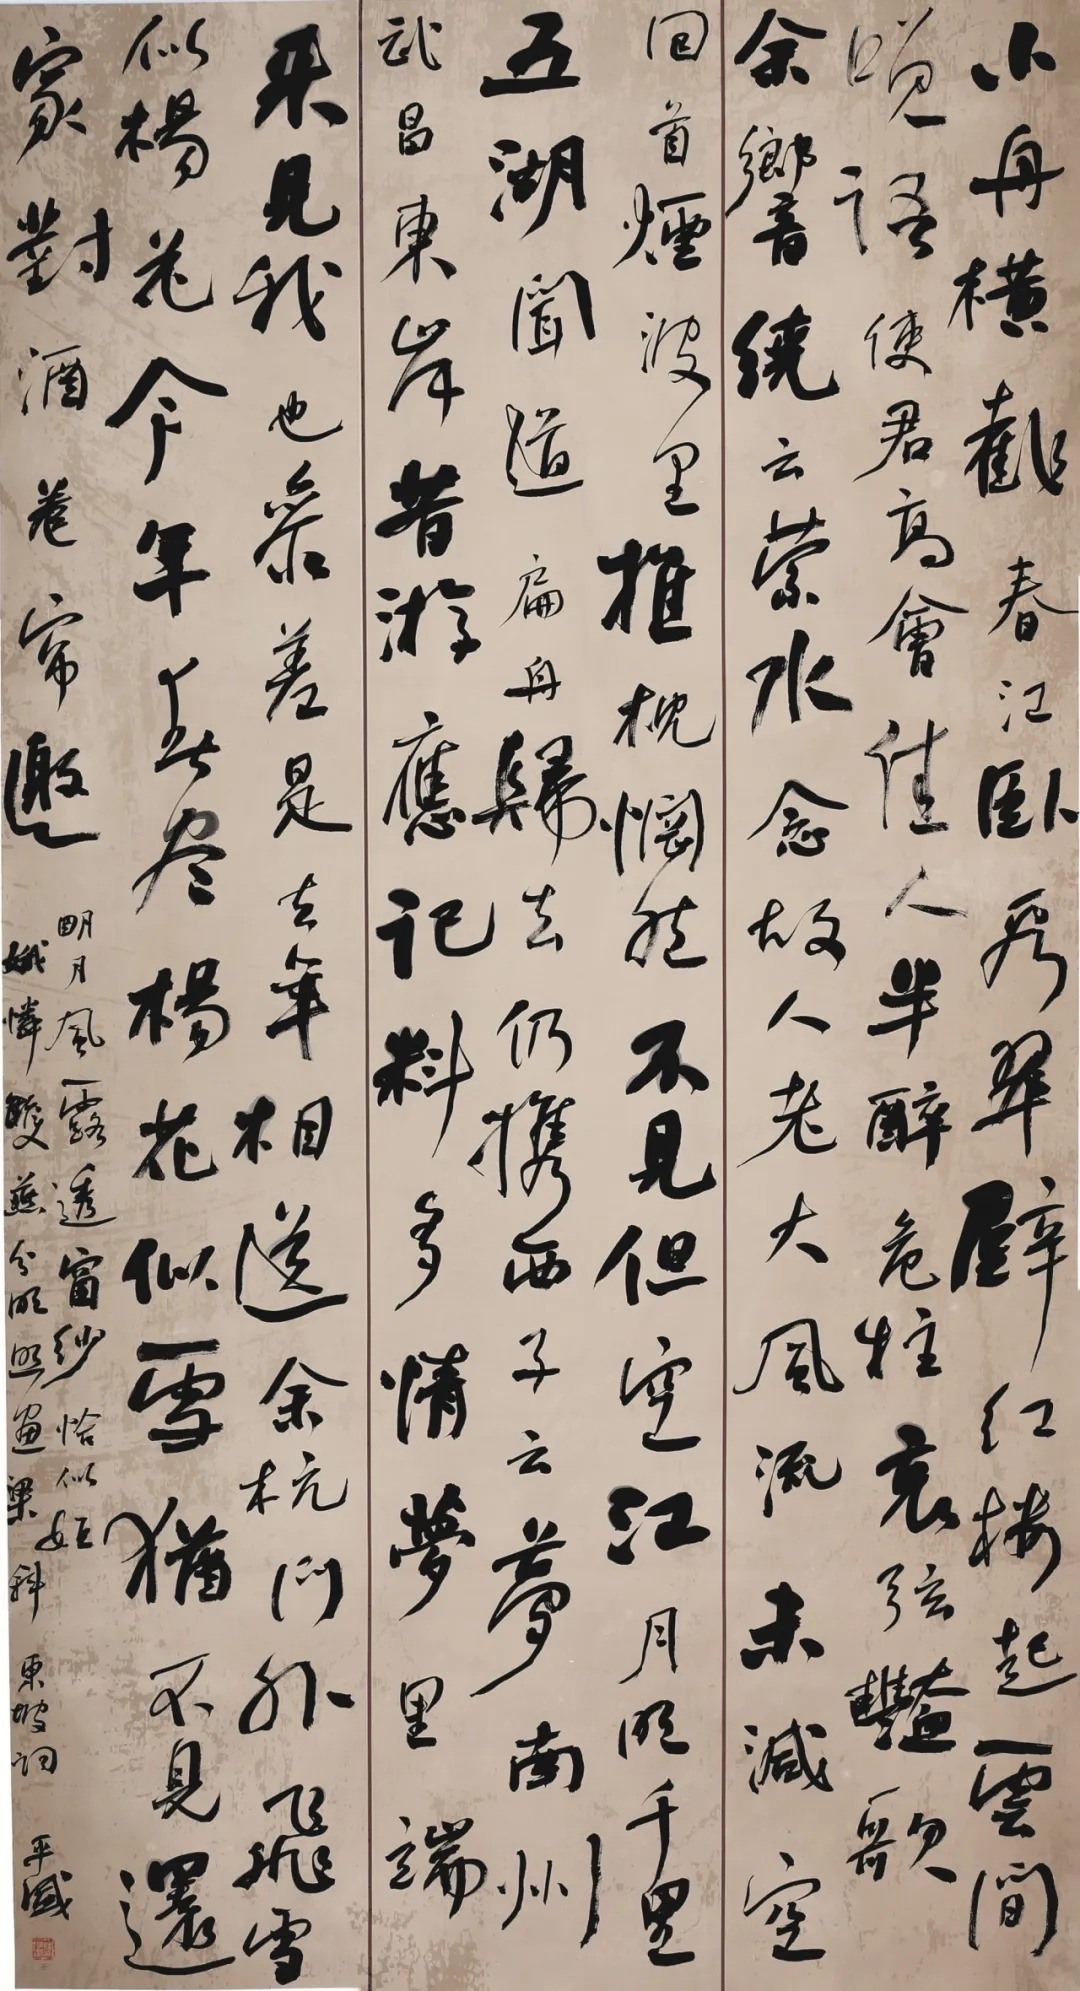 小舟橫截春江卧看翠壁红楼起雲間
咲語使君高會佳人半醉危柱哀弦豔歌
余響繞云萦水念故人老大風流未減空
回首煙波里推枕惘然不見但空江月明千里
五湖聞道扁舟歸去仍携西子云夢南州
武昌東岸昔游應記料多情夢里端
来見我也參差是去年相送余杭門外飛雪
似楊花今年春尽楊花似雪猶不見還
家對酒卷帘邀
明月風露透窗纱恰似姮
娥憐雙燕分明照畫梁斜 東坡詞 平